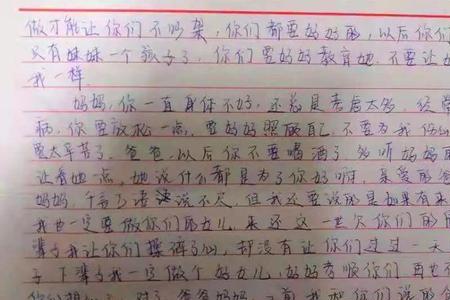 做才能让你们不吵架，你们都要好好的，以后你们
只有妹妹一个孩子了，你们要好好教育她，不要让她
我一样。
妈妈，你一直身体不好，还总是考虑太多，经常
病，你要放松一点，要好好照顾自己，不要为我伤心
要太辛苦了。爸爸，以后你不要喝酒了，多听妈妈的
让着她一点，她说什么都是为了你好啊，亲爱的爸
妈妈，千言万语说不尽，但我还要说的是如果有来
我也一定要做你们的女儿，来还这一世欠你们的
辈子我让你们操碎了心，却没有让你们过过一天
子下辈子我一定做个好女儿，好好孝顺你们，再也不
对了，爸爸妈妈